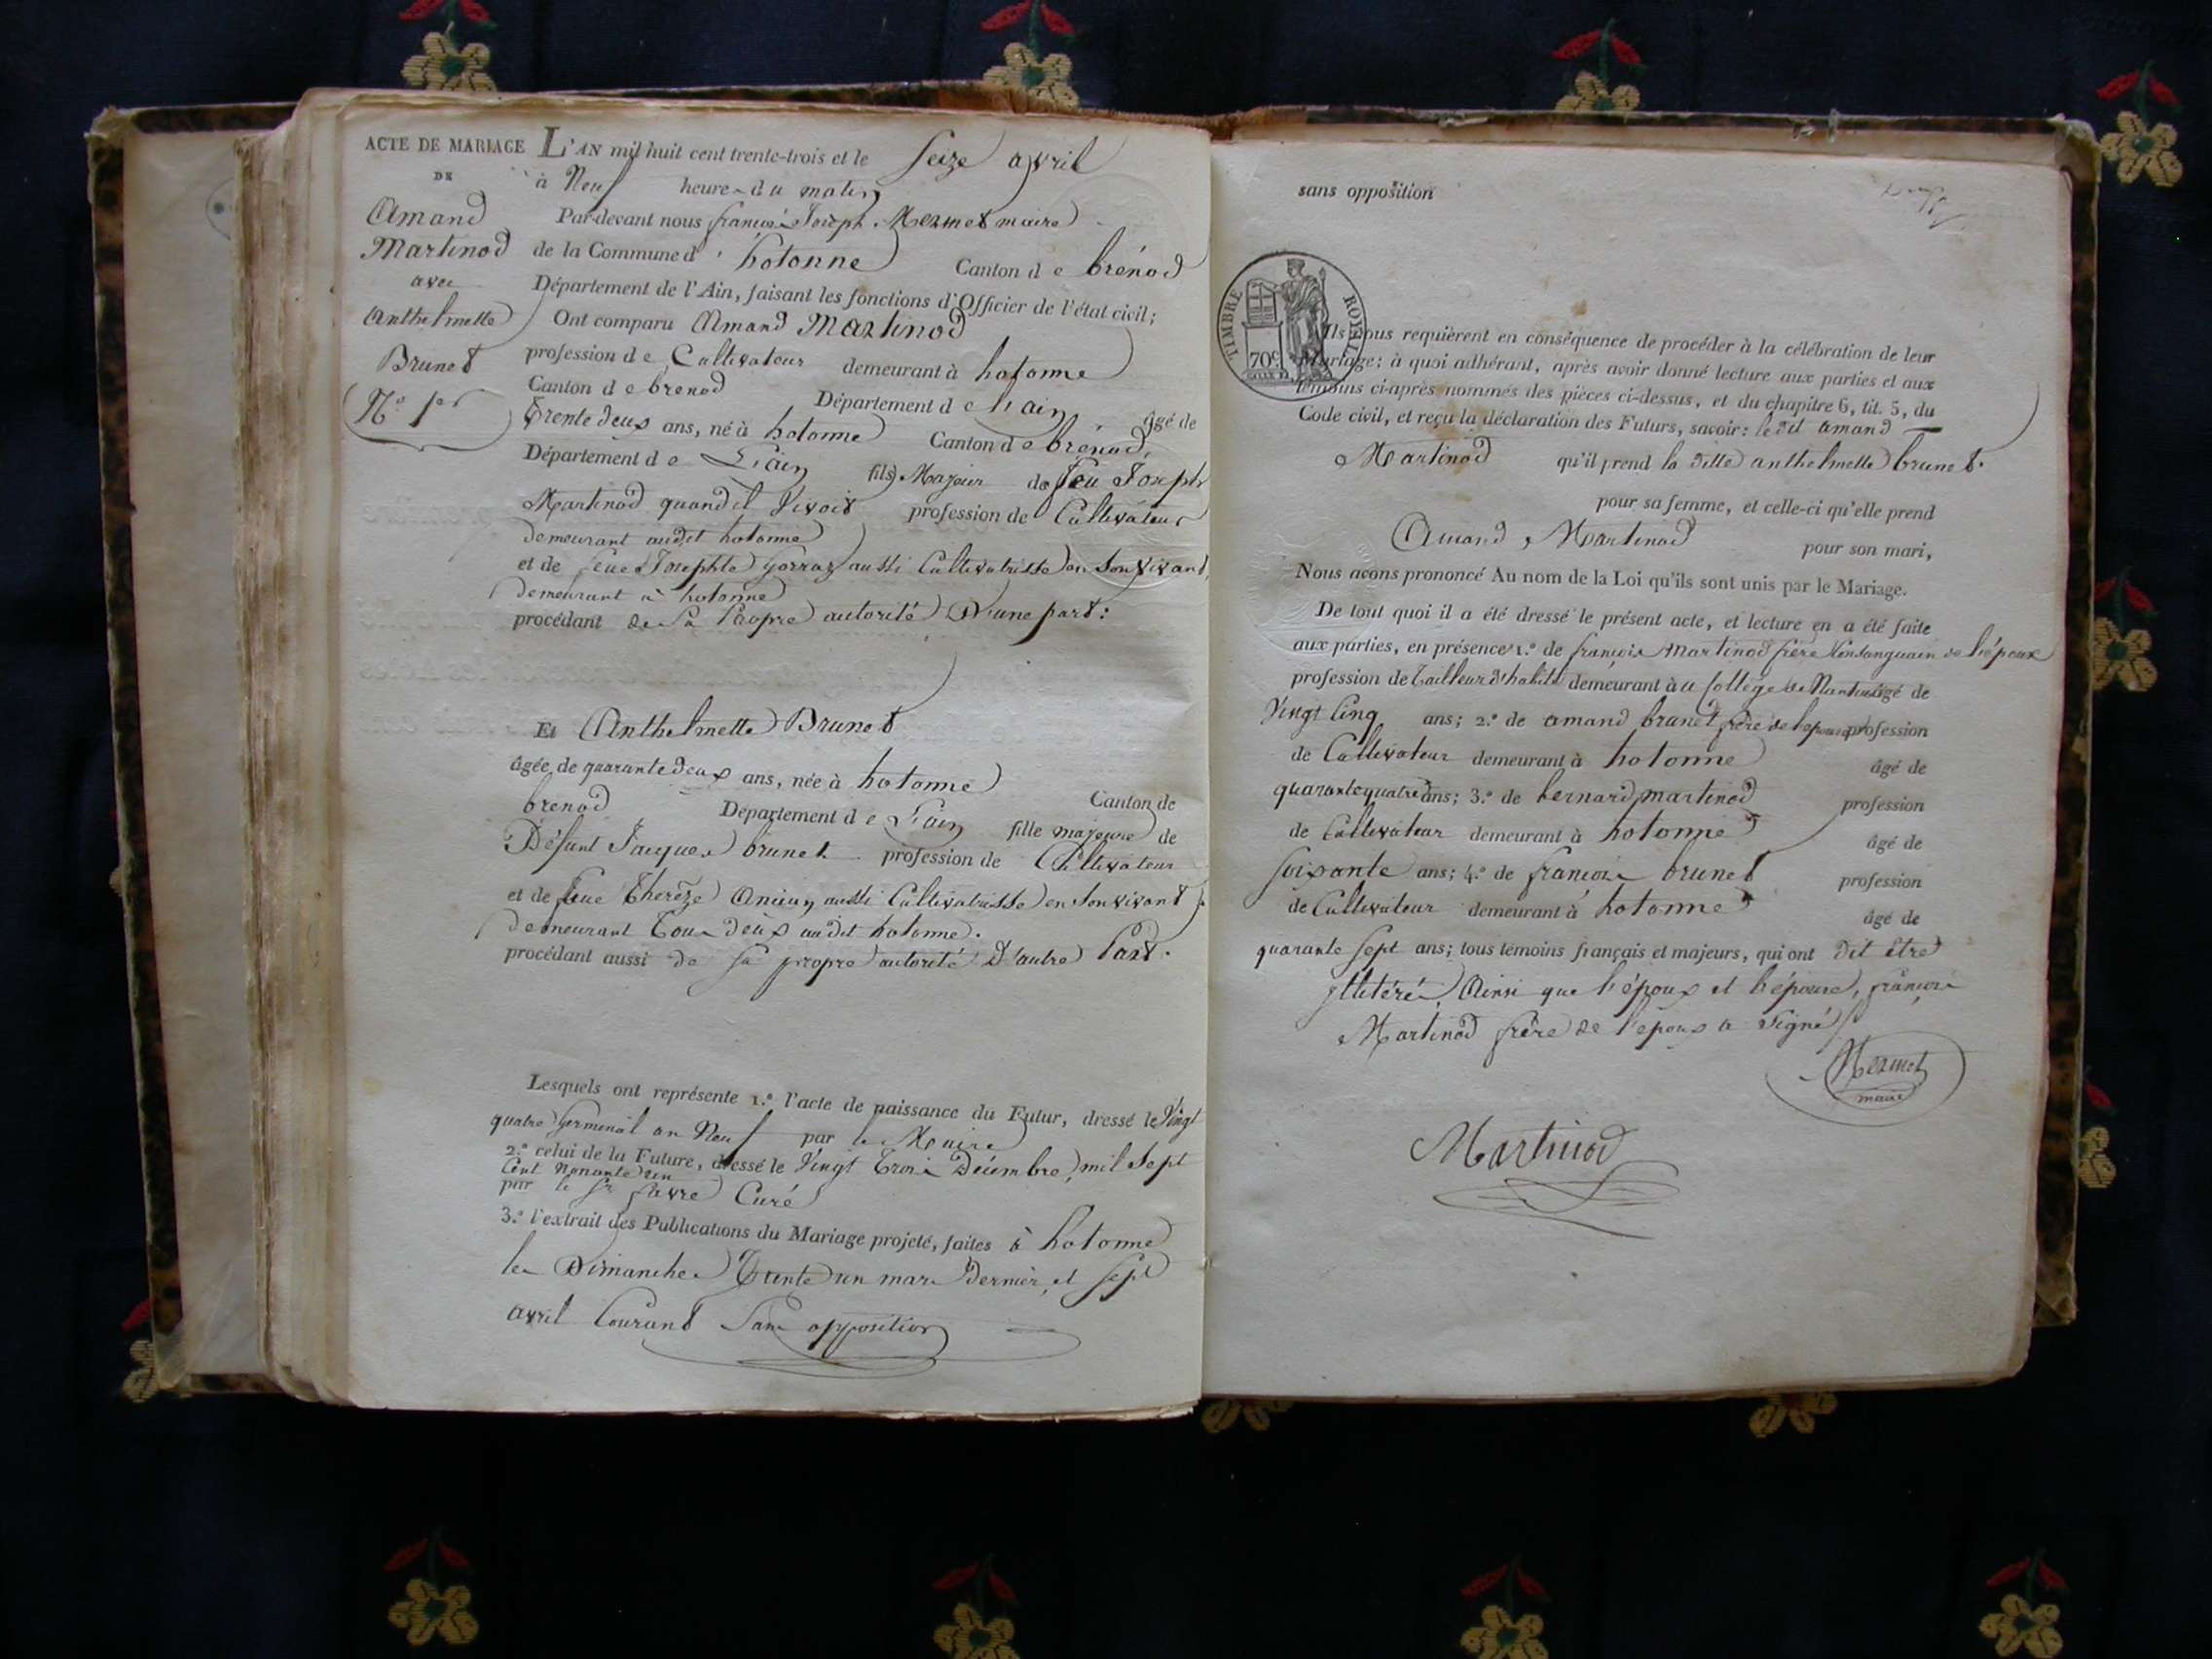 ACTE DE MARIAGE
DE
Amand
Martinod
avec
Anthelmette
Brunet
N.º 1er
L'AN mil huit cent trente-trois et le seize avril
à Neuf heures du matin
Par-devant nous françois Joseph Mermet maire
de la Commune d' hotonne Canton de brénod
Département de l'Ain, faisant les fonctions d'Officier de l'état civil;
Ont comparu Amand Martinod
profession de Cultivateur demeurant à hotonne
Canton de brenod Département de l'ain âgé de
Trente deux ans, né à hotonne Canton de brénod,
Département de L'ain fils Majeur de feu Joseph
Martinod quand il Vivoit profession de Cultivateur
demeurant audit hotonne
et de feue Josephte gorraz aussi Cultivatrisse en son vivant,
demeurant à hotonne
procédant de Sa Propre autorité D'une part:
Et Anthelmette Brunet
âgée de quarante deux ans, née à hotonne
Canton de
brenod Département de L'ain fille majeure de
Défunt Jacques brunet profession de Cultivateur
et de feue Therèze Ancian aussi Cultivatrisse en son vivant
demeurant Tous deux audit hotonne.
procédant aussi de sa propre autorité D'autre Part.
Lesquels ont représenté 1.º l'acte de naissance du Futur, dressé le Vingt
quatre Germinal an Neuf par le Maire
2.º celui de la Future, dressé le Vingt Trois Décembre, mil Sept
Cent Nonante un
par le Sr favre Curé
3.º l'extrait des Publications du Mariage projeté, faites à hotonne
les Dimanches Trente un mars Dernier, et Sept
avril Courant Sans opposition
sans opposition
TIMBRE ROYAL
70c.
Ils nous requièrent en conséquence de procéder à la célébration de leur
Mariage: à quoi adhérant, après avoir donné lecture aux parties et aux
témoins ci-après nommés des pièces ci-dessus, et du chapitre 6, tit. 5, du
Code civil, et reçu la déclaration des Futurs, savoir: ledit amand
Martinod qu'il prend la ditte anthelmette brunet.
pour sa femme, et celle-ci qu'elle prend
Amand Martinod pour son mari,
Nous avons prononcé Au nom de la Loi qu'ils sont unis par le Mariage.
De tout quoi il a été dressé le présent acte, et lecture en a été faite
aux parties, en présence 1.º de françois Martinod frère Consanguain de l'époux
profession de Tailleur d'habits demeurant à u College de Nantua âgé de
Vingt Cinq ans; 2.º de amand brunet frère de l'epouse profession
de Cultivateur demeurant à hotonne âgé de
quarante quatre ans; 3.º de bernard martinod profession
de Cultivateur demeurant à hotonne âgé de
soixante ans; 4.º de françois brunet profession
de Cultivateur demeurant à hotonne âgé de
quarante sept ans; tous témoins français et majeurs, qui ont dit être
illitérés, Ainsi que l'époux et l'épouse, françois
Martinod frère de l'epoux a signé
Mermet
maire
Martinod